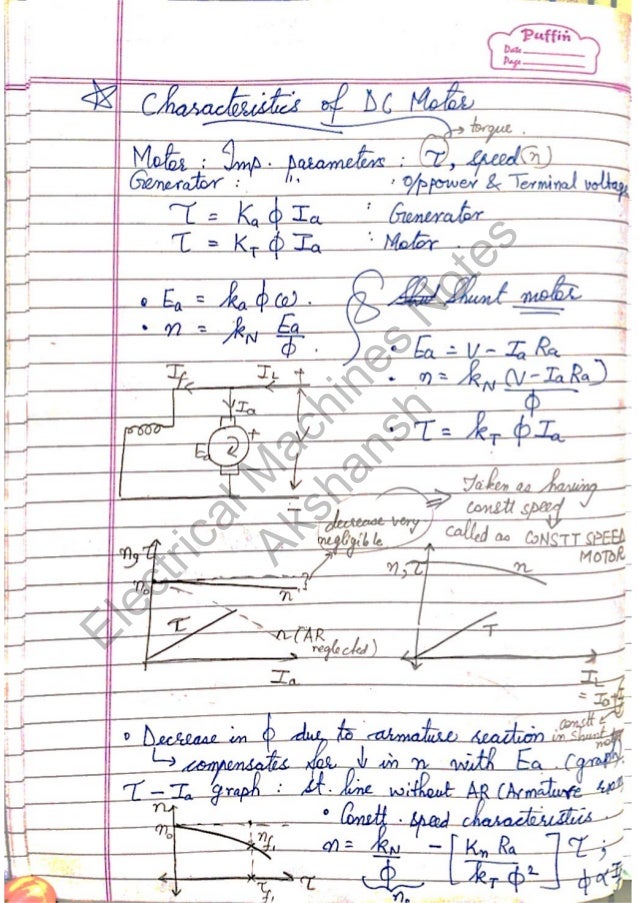 Puffin
Date
Page
☆ Characteristics of DC Motor
→ torque.
Motor : Imp. parameters : τ, speed (n)
Generator : ,, : o/p power & Terminal voltage
τ = Ka ϕ Ia : Generator
τ = KT ϕ Ia : Motor.
• Ea = ka ϕ ω.
• n = kN Ea/ϕ.
Shunt motor
• Ea = V - Ia Ra
• n = kN (V - Ia Ra)/ϕ
• τ = kT ϕ Ia
If IL +
Ia
Ea +
V
-
Taken as having
constt speed
called as CONSTT SPEED
MOTOR
decrease very
negligible
n, τ
n0
n
τ
n (AR
neglected)
Ia
n, τ
n
τ
IL
= I0 +
constt
in shunt
• Decrease in ϕ due to armature reaction
↳ compensates for ↓ in n with Ea. (graph)
τ - Ia graph : st. line without AR (Armature
• Constt. speed characteristics.
n
n0
nf1
τf1
τ
n = kN/ϕ - [Kn Ra / kT ϕ²] τ ;
n0
ϕ ∝ If
Electrical Machines Notes
Akshansh